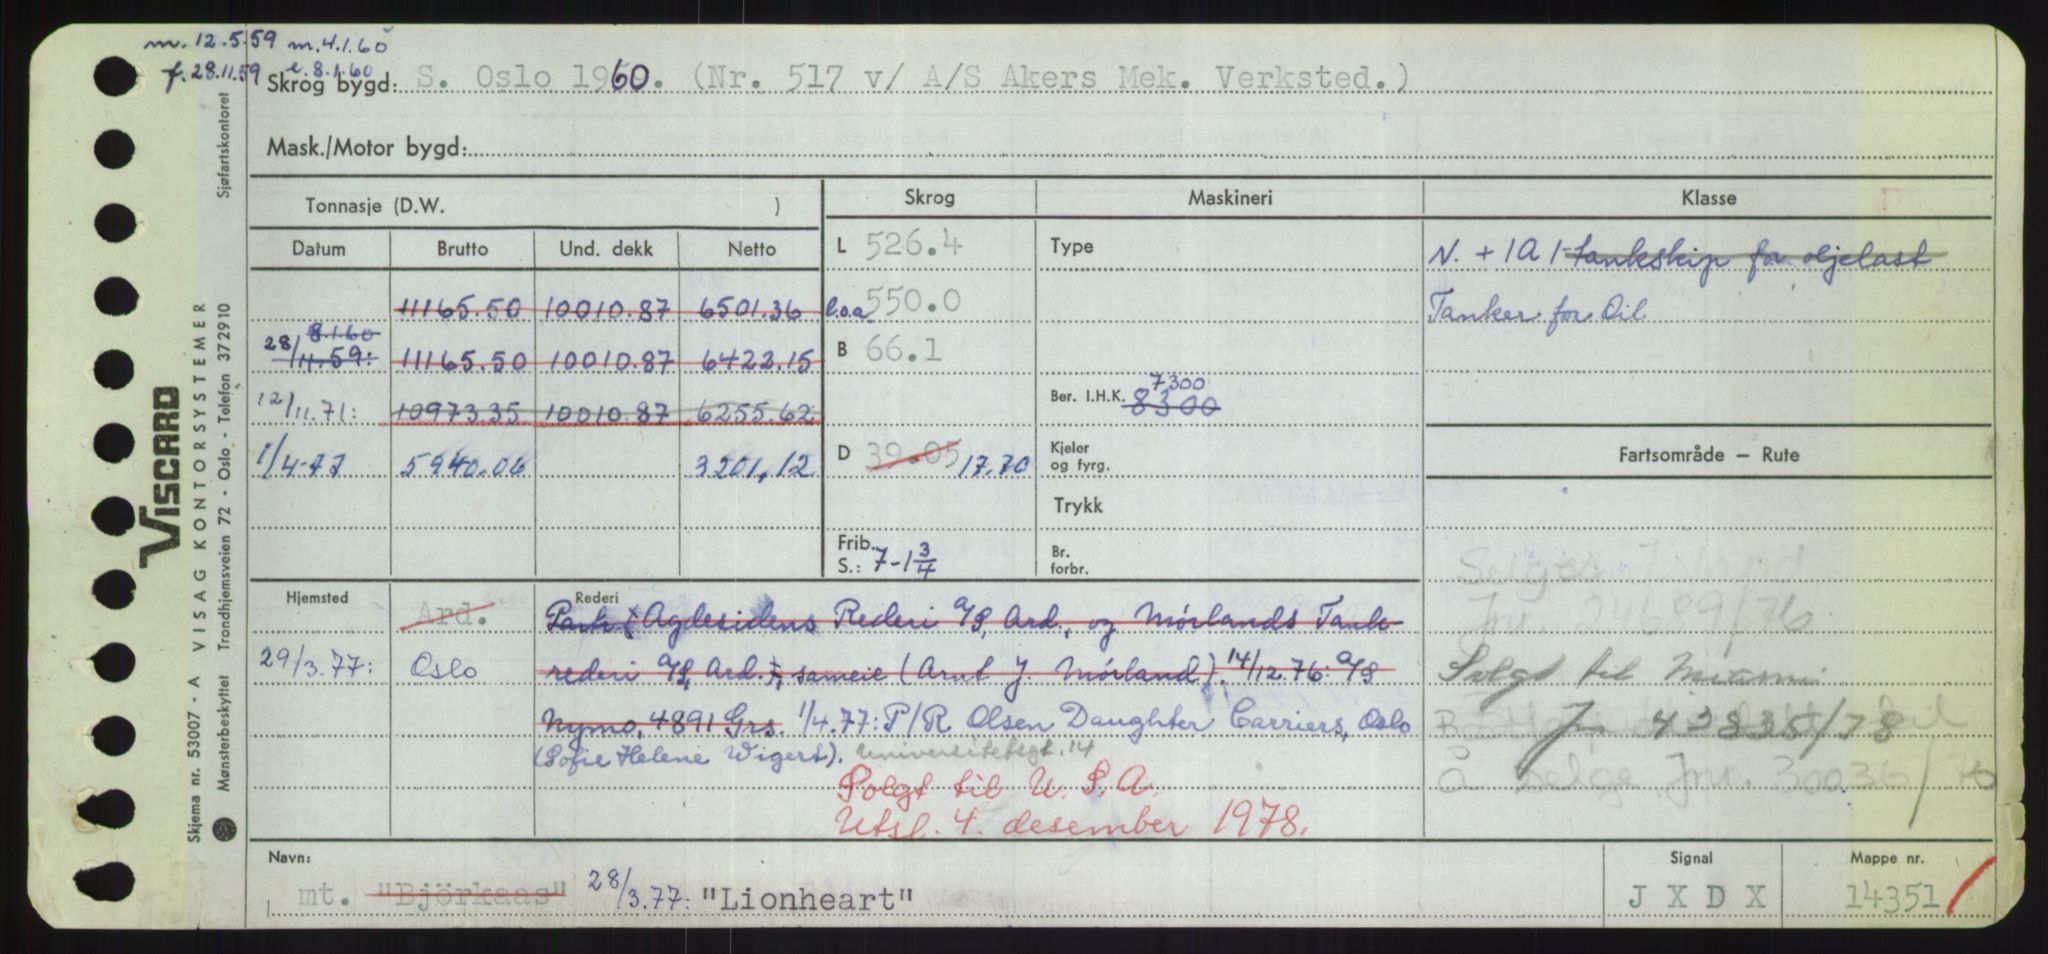 m. 12.5.59 m. 4.1.60
f. 28.11.59 l. 8.1.60
Skrog bygd: S. Oslo 1960. (Nr. 517 v/ A/S Akers Mek. Verksted.)
Mask./Motor bygd:
Tonnasje (D.W. )
Skrog
Maskineri
Klasse
Datum Brutto Und. dekk Netto
L 526.4
Type
N. + 1A 1 - tankskip for oljelast
11165.50 10010.87 6501.36
l.o.a. 550.0
Tanker for Oil
8.1.60
28/11.59: 11165.50 10010.87 6422.15
B 66.1
7300
Ber. I.H.K. 8300
12/11.71: 10973.35 10010.87 6255.62
1/4-77 5940.06 3201,12
D 39.05 17.70
Kjeler
og fyrg.
Fartsområde – Rute
Trykk
Frib.
S.: 7-1 3/4
Br.
forbr.
Hjemsted Ard.
Rederi
Agdesidens Rederi A/S, Ard., og Mørlands Tank-
29/3.77: Oslo
rederi A/S, Ard., sameie (Arnt J. Mørland). 14/12.76: A/S
Nymo, 4891 Grs. 1/4.77: P/R Olsen Daughter Carriers, Oslo
(Sofie Helene Wigert). Universitetsgt. 14
Solgt til U.S.A.
Utsl. 4. desember 1978.
Jnr. 24689/76
Solgt til Miami
J 43835/78
å selge, Jnr. 30036/76
Navn:
mt. "Björkaas" 28/3.77: "Lionheart"
Signal
J X D X
Mappe nr.
14351
Skjema nr. 53007 - A VISAG KONTORSYSTEMER
Mønsterbeskyttet Trondhjemsveien 72 - Oslo - Telefon 372910 Sjøfartskontoret
VISCARD